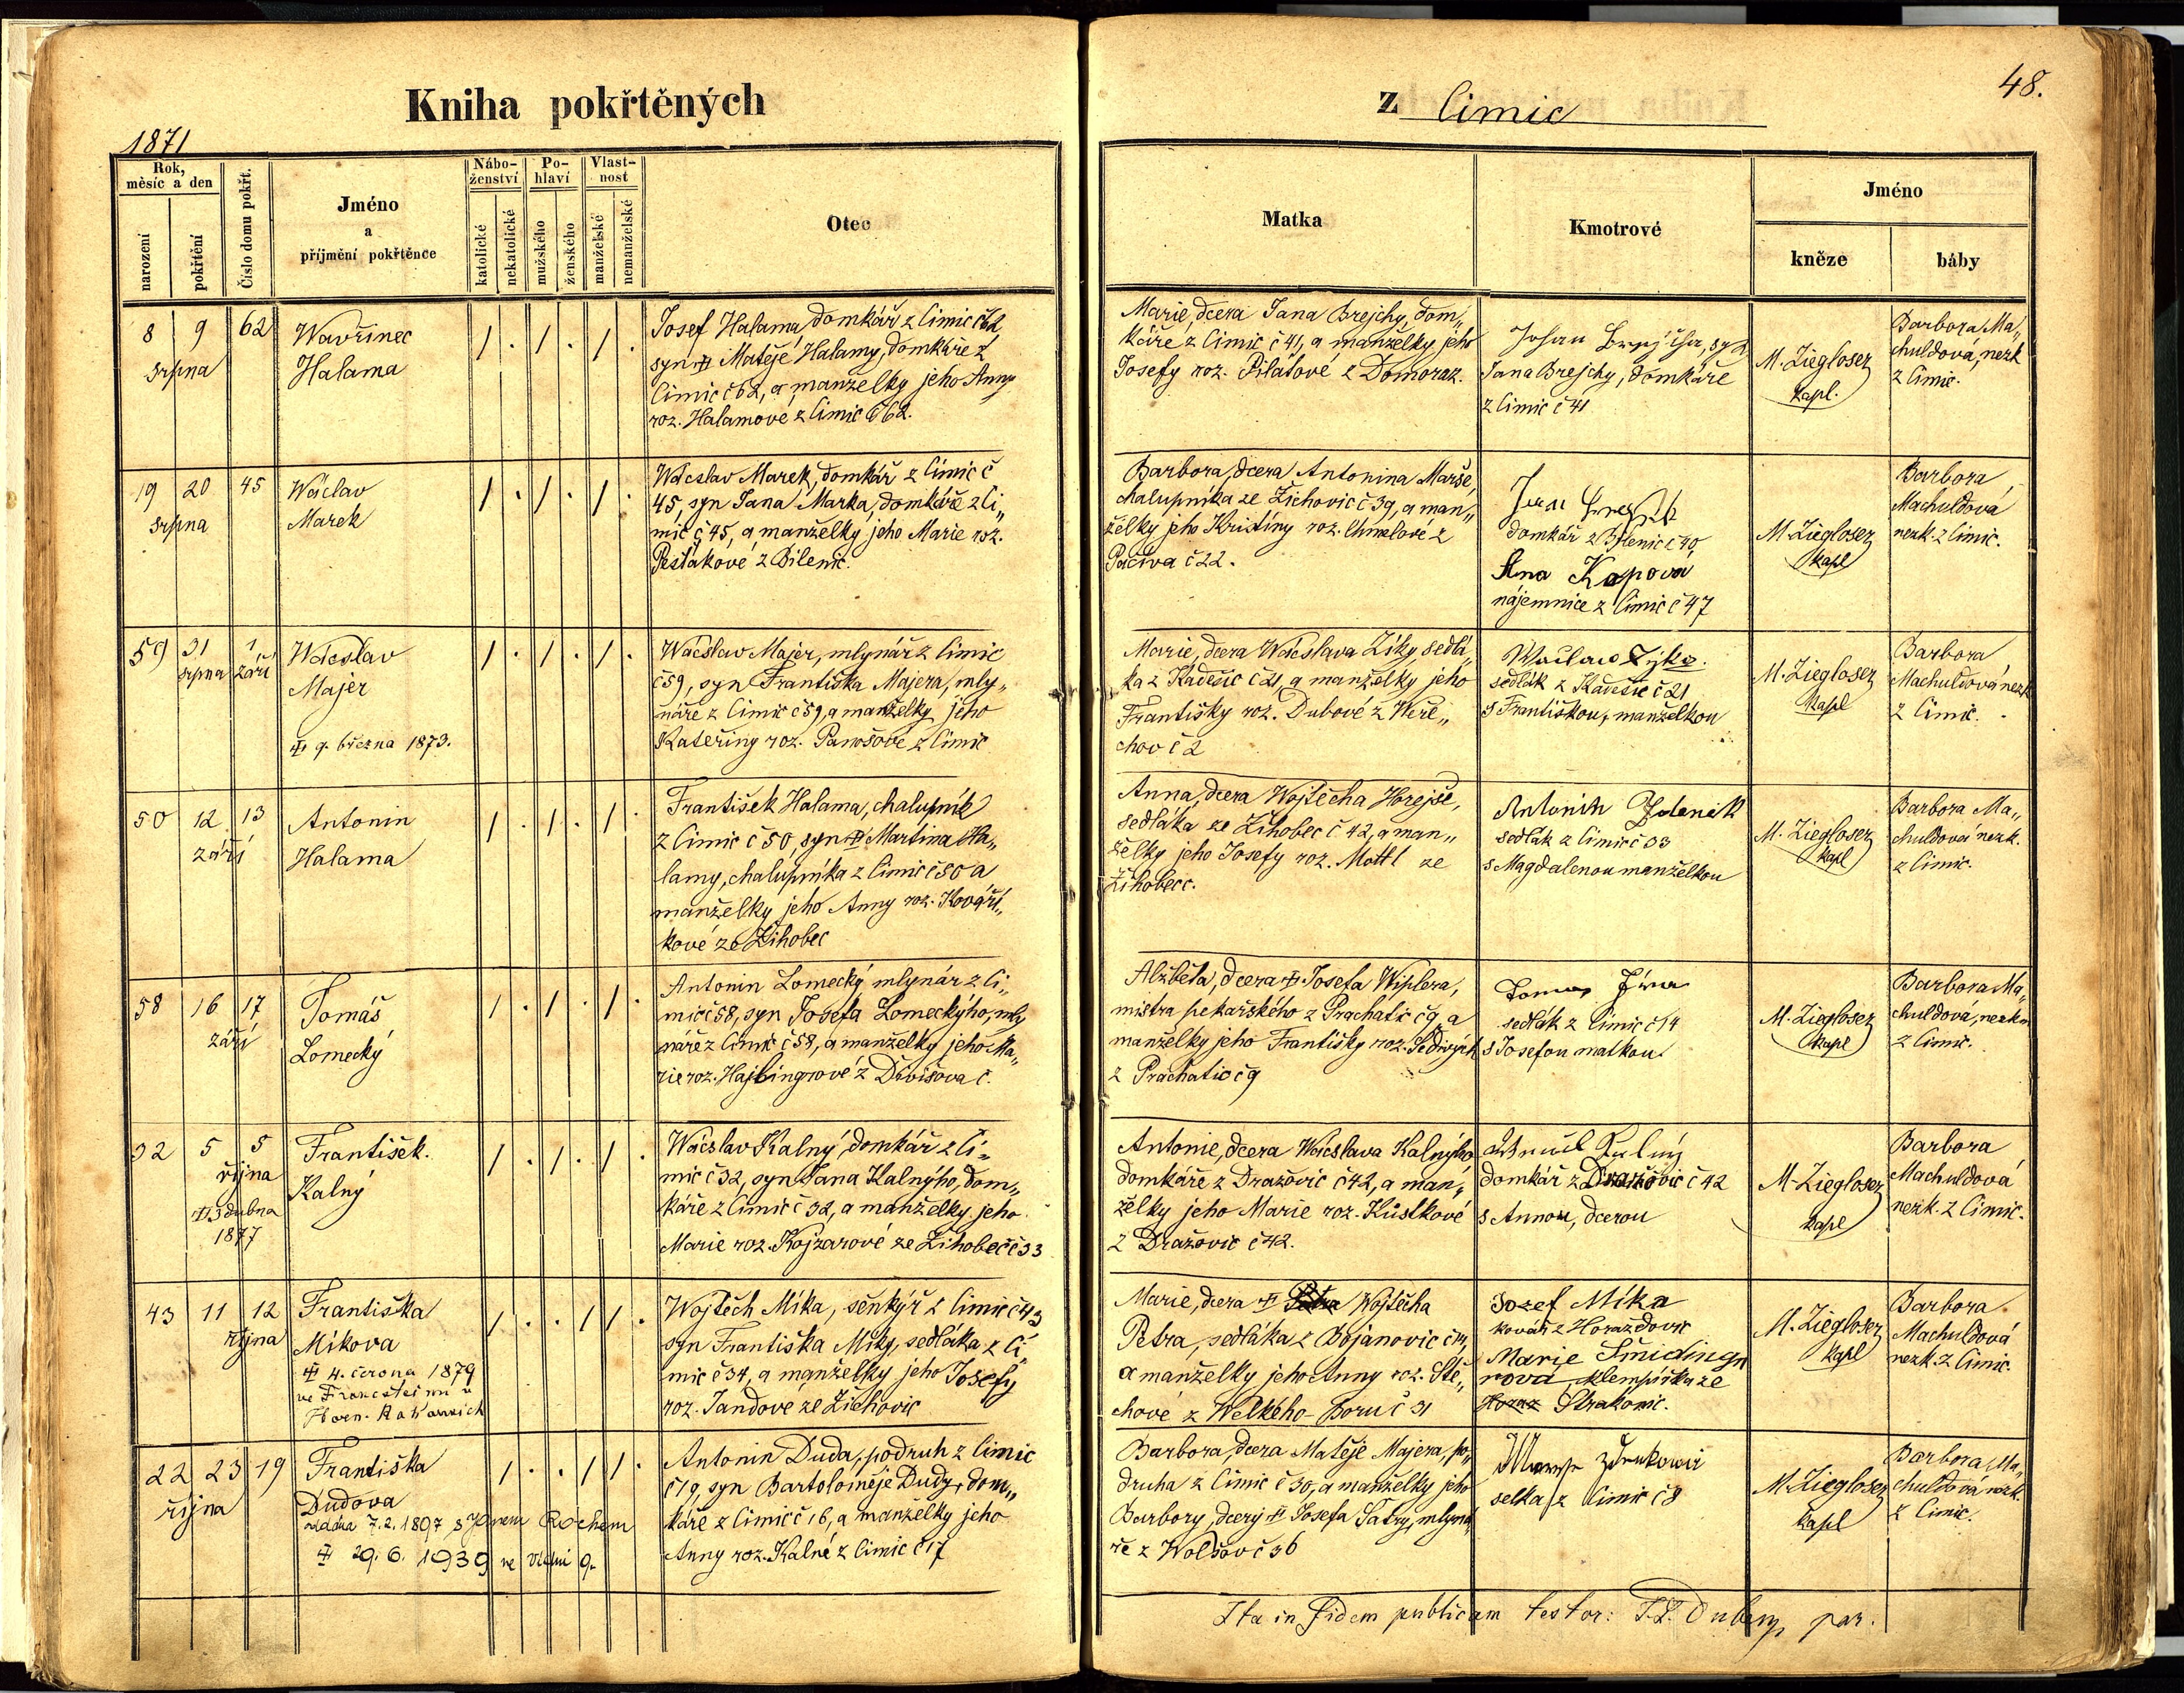 Kniha pokřtěných
z Cimic
48.
1871
Rok,
měsíc a den
narození
pokřtění
Číslo domu pokřt.
Jméno
a
příjmení pokřtěnce
Nábo-
ženství
katolické
nekatolické
Po-
hlaví
mužského
ženského
Vlast-
nost
manželské
nemanželské
Otec
Matka
Kmotrové
Jméno
kněze
báby
8 9 62
srpna
Wavřinec
Halama
/ . / . / .
Josef Halama, domkář z Cimic č 62,
syn Matěje Halamy, domkáře z
Cimic č 62, a manželky jeho Anny
roz. Halamové z Cimic č 62.
Marie, dcera Jana Brejchy, dom„
káře z Cimic č 41, a manželky jeho
Josefy roz. Pilátové z Domoraz.
Johan Brejcha, syn
Jana Brejchy, domkáře
z Cimic č 41
M. Ziegloser
kapl.
Barbora Ma„
chuldová, nezk
z Cimic.
19 20 45
srpna
Wáclav
Marek
/ . / . / .
Wácslav Marek, domkář z Cimic č
45, syn Jana Marka, domkáře z Ci„
mic č 45, a manželky jeho Marie roz.
Pešťákové z Bílenic.
Barbora, dcera Antonina Marše,
chalupníka ze Žichovic č 39, a man„
želky jeho Kristiny roz. Chmelové z
Pačiva č 22.
domkář z Bílenic č 40,
Ana Kapova
nájemnice z Cimic č 47
M. Ziegloser
kapl
Barbora
Machuldová
nezk. z Cimic.
59 31 1
srpna září
Wácslav
Majer
9. března 1873.
/ . / . / .
Wácslav Majer, mlynář z Cimic
č 59, syn Františka Majera, mly„
náře z Cimic č 59, a manželky jeho
Kateřiny roz. Panošové z Cimic
Marie, dcera Wácslava Zíky, sedlá„
ka z Kadešic č 21, a manželky jeho
Františky roz. Dubové z Weře„
chov č 2
Waclaw Zyka.
sedlák z Kadešic č 21
s Františkou, manželkou
M. Ziegloser
kapl
Barbora
Machuldová nezk
z Cimic.
50 12 13
září
Antonin
Halama
/ . / . / .
František Halama, chalupník
z Cimic č 50, syn Martina Ha„
lamy, chalupníka z Cimic č 50 a
manželky jeho Anny roz. Kováří„
kové ze Žihobec
Anna, dcera Wojtěcha Horejše,
sedláka ze Žihobec č 42, a man„
želky jeho Josefy roz. Mottl ze
Žihobec.
Antonin Zdenek
sedlák z Cimic č 33
s Magdalenou manželkou
M. Ziegloser
kapl
Barbora Ma„
chuldová nezk.
z Cimic.
58 16 17
září
Tomáš
Lomecký
/ . / . / .
Antonin Lomecký, mlynář z Ci„
mic č 58, syn Josefa Lomeckýho, mly
náře z Cimic č 58, a manželky jeho Ma„
rie roz. Hajbingrové z Divišova č.
Alžběta, dcera Josefa Wiplera,
mistra pekařského z Prachatic č 9, a
manželky jeho Františky roz. Šedivých
z Prachatic č 9
Tomas Jíra
sedlák z Cimic č 14
s Josefou matkou.
M. Ziegloser
kapl
Barbora Ma„
chuldová, nezk.
z Cimic.
32 5 5
října
3 dubna
1877
František.
Kalný
/ . / . / .
Wácslav Kalný, domkář z Ci„
mic č 32, syn Jana Kalnýho, dom„
káře z Cimic č 32, a manželky jeho
Marie roz. Kojzarové ze Žihobec č 33
Antonie, dcera Wácslava Kalnýho
domkáře z Dražovic č 42, a man„
želky jeho Marie roz. Kůstkové
z Dražovic č 42.
domkář z Dražovic č 42
s Annou, dcerou
M. Ziegloser
kapl
Barbora
Machuldová
nezk. z Cimic.
43 11 12
října
Františka
Míkova
4. června 1879
ve
/ . . / / .
Wojtěch Míka, šenkýř z Cimic č 43
syn Františka Míky, sedláka z Ci
mic č 34, a manželky jeho Josefy
roz. Jandové ze Žichovic
Marie, dcera Wojtěcha
Petra, sedláka z Bojanovic č 14,
a manželky jeho Anny roz. Stě„
chové z Welkého-Boru č 31
Jozef Míka
kovář z Horažďovic
Marie Šmidingr
rova klempířka ze
Strakonic.
M. Ziegloser
kapl
Barbora
Machuldová
nezk. z Cimic.
22 23 19
října
Františka
Dudova
7. 2. 1897 s Janem Rochem
29. 6. 1939 ve Vídni 9.
/ . . / / .
Antonin Duda, podruh z Cimic
č 19, syn Bartoloměje Dudy, dom„
káře z Cimic č 16, a manželky jeho
Anny roz. Kalné z Cimic č 17
Barbora, dcera Matěje Majera, po„
druha z Cimic č 30, a manželky jeho
Barbory, dcery Josefa Šatry, mlyná„
ře z Wolšov č 36
selka z Cimic č 8
M. Ziegloser
kapl
Barbora Ma„
chuldová nezk.
z Cimic.
Ita in fidem publicam testor: